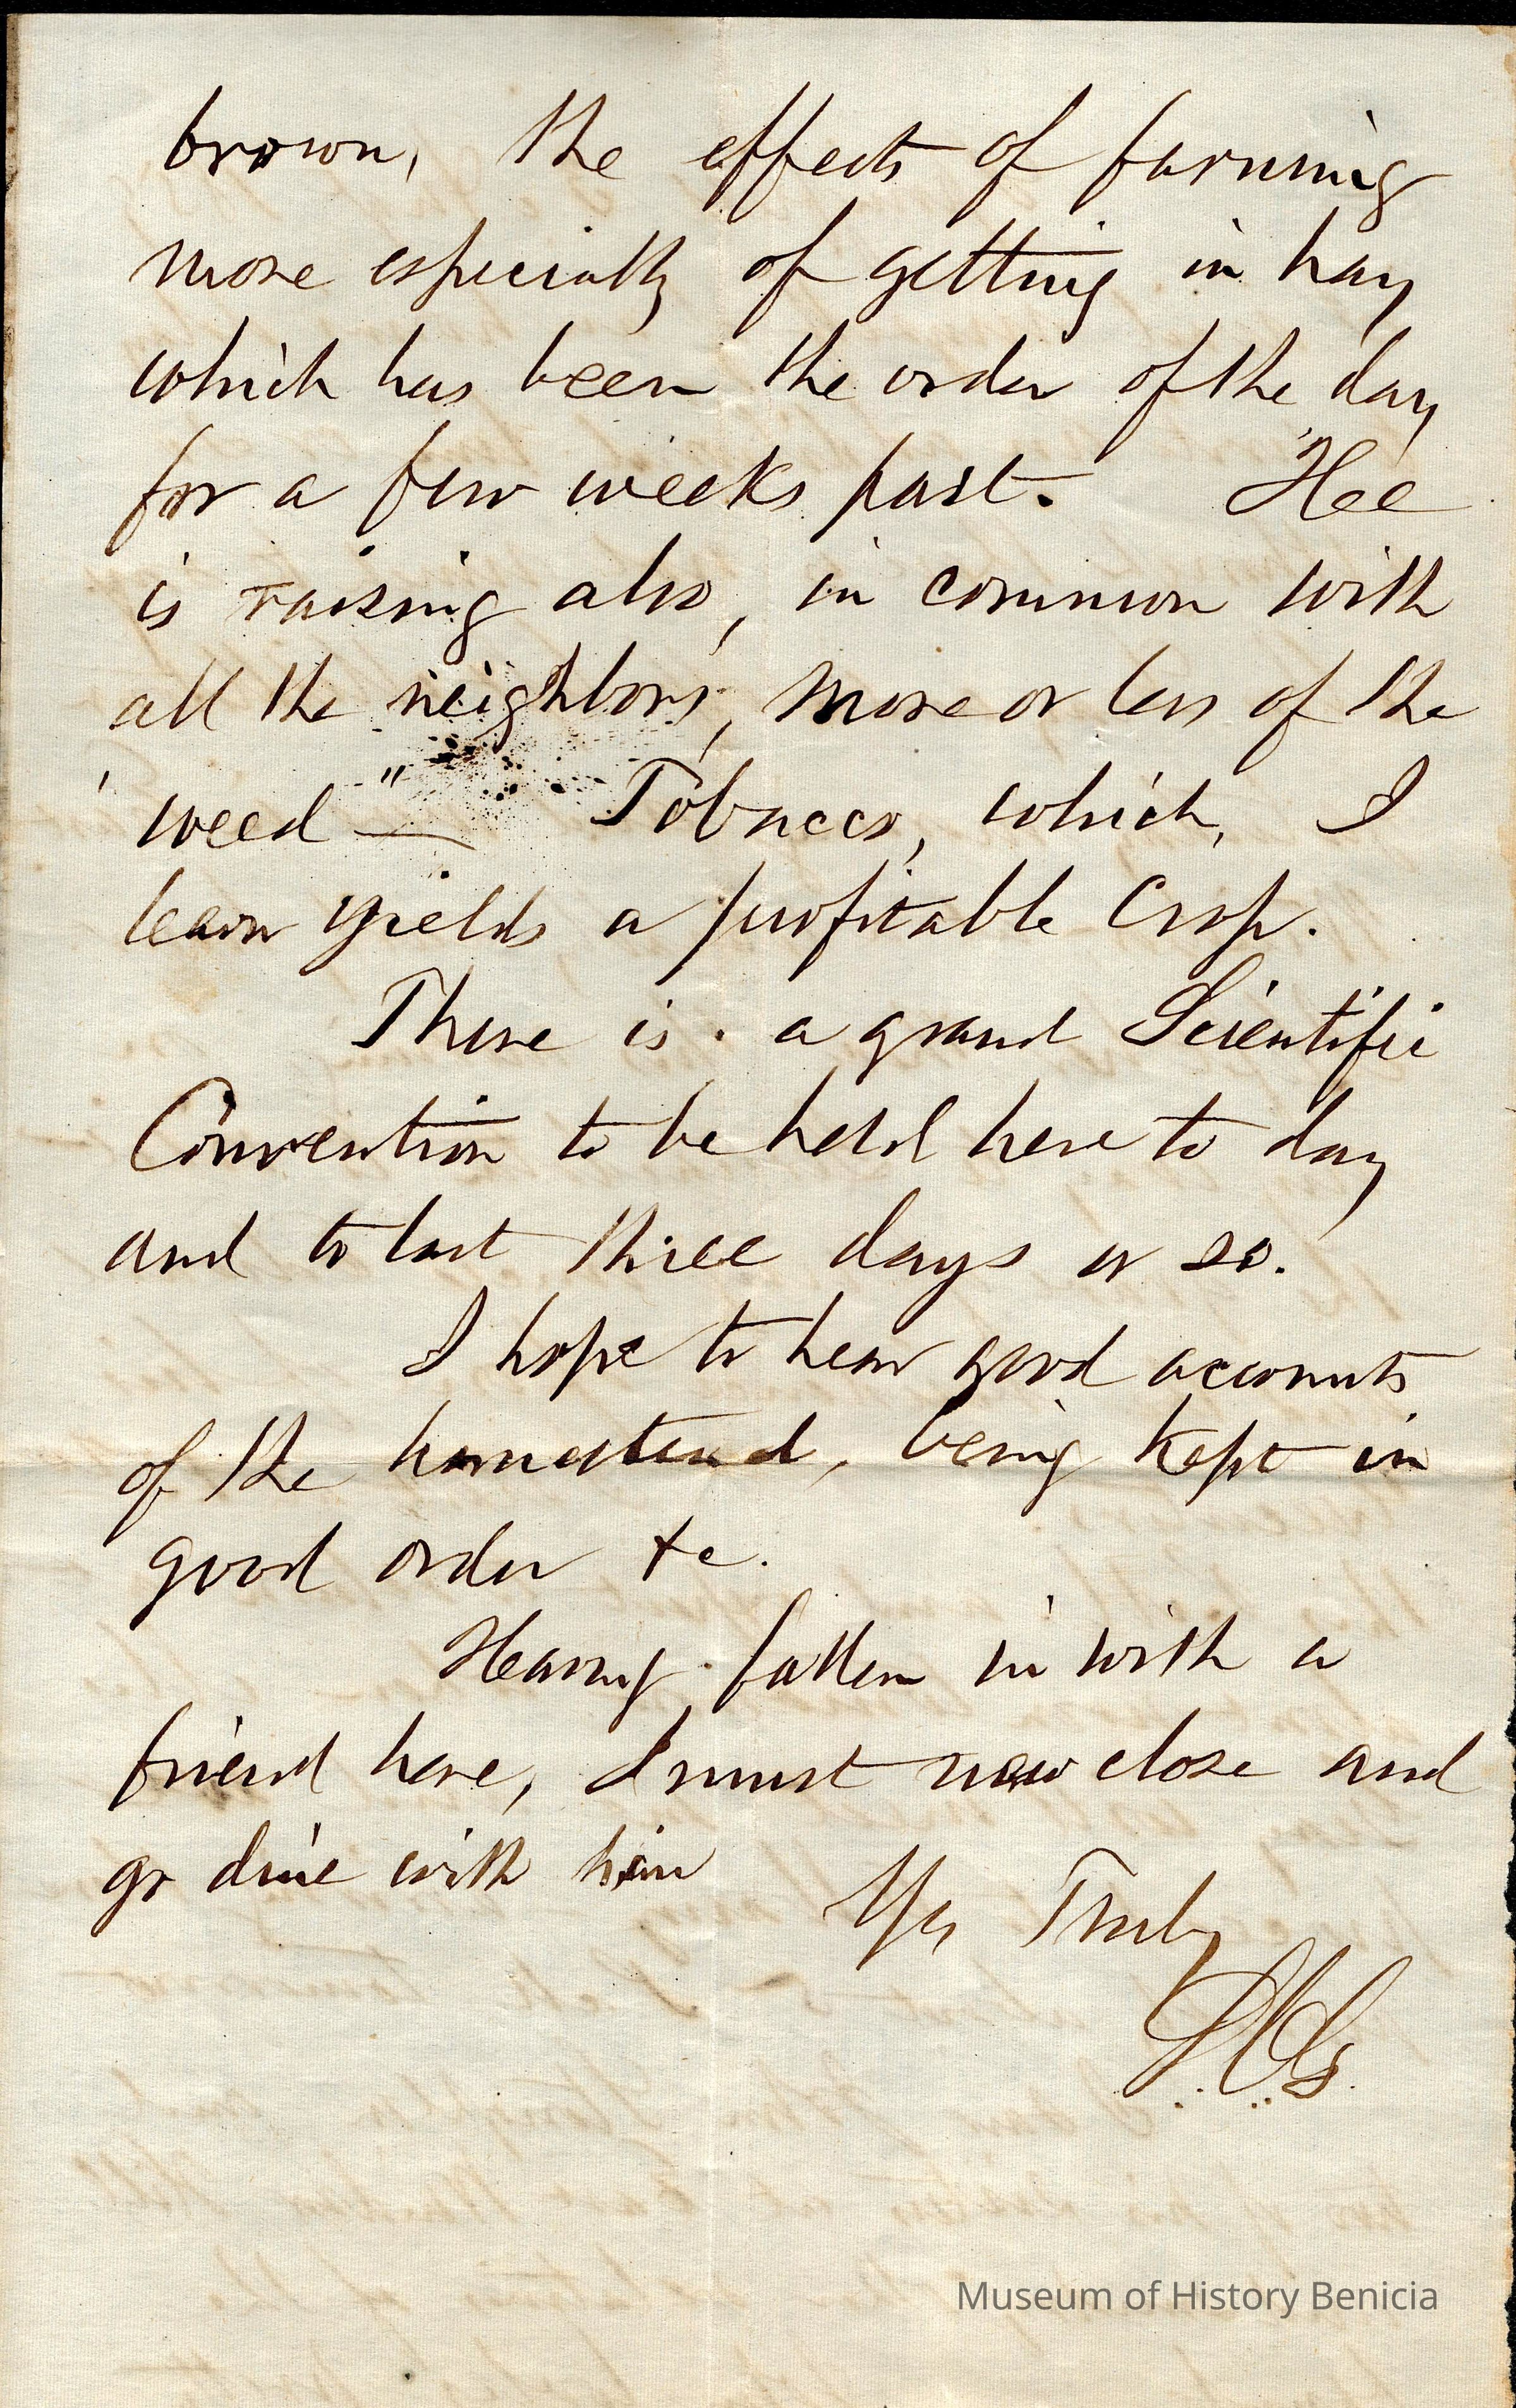 brown, the effects of farming
more especially of getting in hay
which has been the order of the day
for a few weeks past. Hee
is raising also, in common with
all the neighbors, more or less of the
' weed " — Tobacco, which, I
learn yields a profitable Crop.
There is a grand Scientific
Convention to be held here to day
and to last three days or so.
I hope to hear good accounts
of the homestead, being kept in
good order &c.
Having fallen in with a
friend here, I must now close and
go dine with him
Yrs Truly
Museum of History Benicia